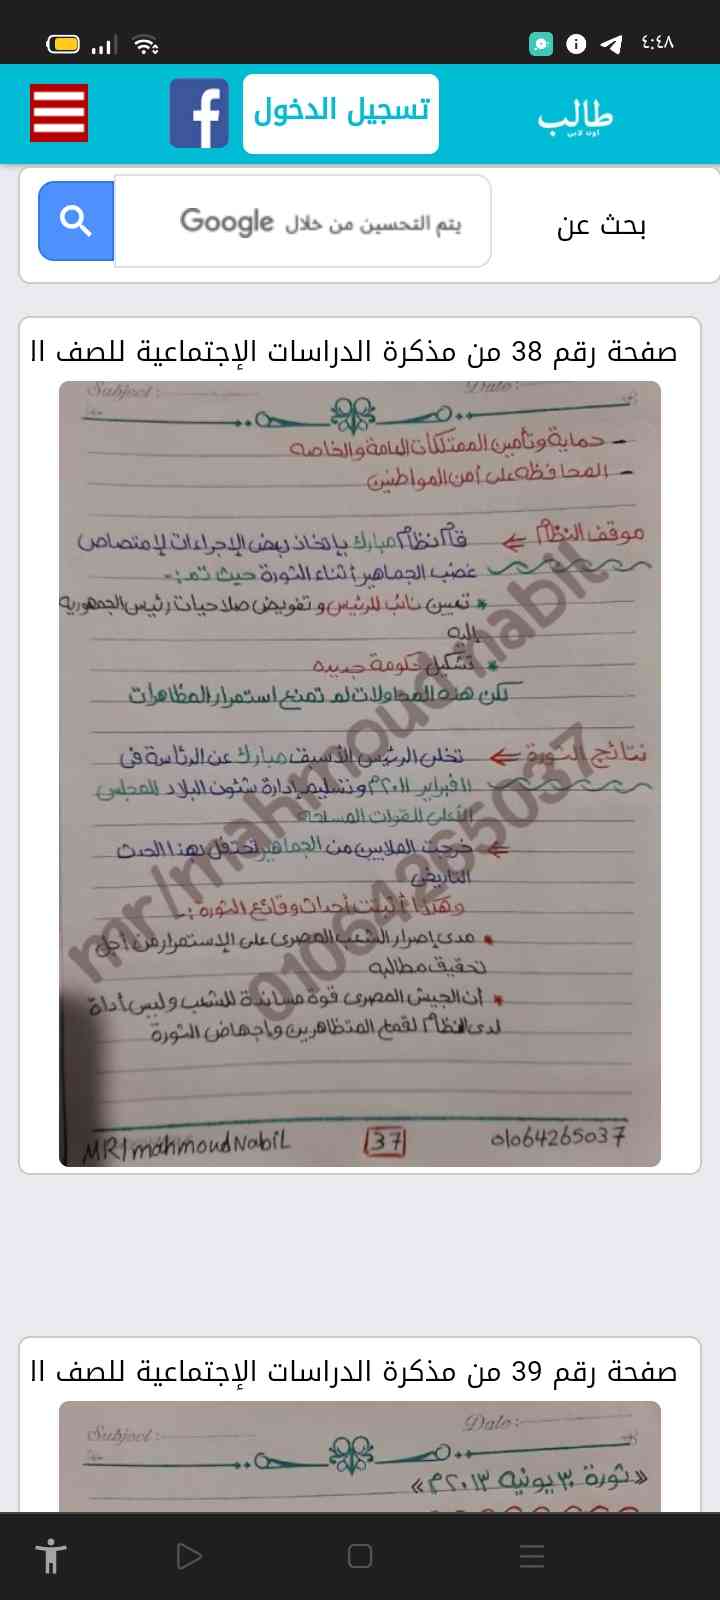 ٤:٤٨
طالب
اون لاين
تسجيل الدخول
بحث عن
يتم التحسين من خلال Google
صفحة رقم 38 من مذكرة الدراسات الإجتماعية للصف ال
Subject :
Date :
– حماية وتأمين الممتلكات العامة والخاصه
– المحافظه على أمن المواطنين
موقف النظام ← قام نظام مبارك بإتخاذ بعض الإجراءات لإمتصاص
غضب الجماهير أثناء الثورة حيث تم :-
* تعيين نائب للرئيس و تفويض صلاحيات رئيس الجمهوريه
إليه
* تشكيل حكومة جديده
لكن هذه المحاولات لم تمنع استمرار المظاهرات
نتائج الثورة ← تخلى الرئيس الأسبق مبارك عن الرئاسة فى
١١ فبراير ٢٠١١م وتسليم إدارة شئون البلاد للمجلس
الأعلى للقوات المسلحه
← خرجت الملايين من الجماهير تحتفل بهذا الحدث
التاريخى
وهكذا أثبتت أحداث وقائع الثوره :-
* مدى إصرار الشعب المصرى على الإستمرار من أجل
تحقيق مطالبه
* أن الجيش المصرى قوة مساندة للشعب وليس أداة
لدى النظام لقمع المتظاهرين وإجهاض الثورة
mr/mahmoud nabil
01064265037
MR/mahmoudNabiL
37
01064265037
صفحة رقم 39 من مذكرة الدراسات الإجتماعية للصف ال
Subject :
Date :
«ثورة ٣٠ يونيه ٢٠١٣م»